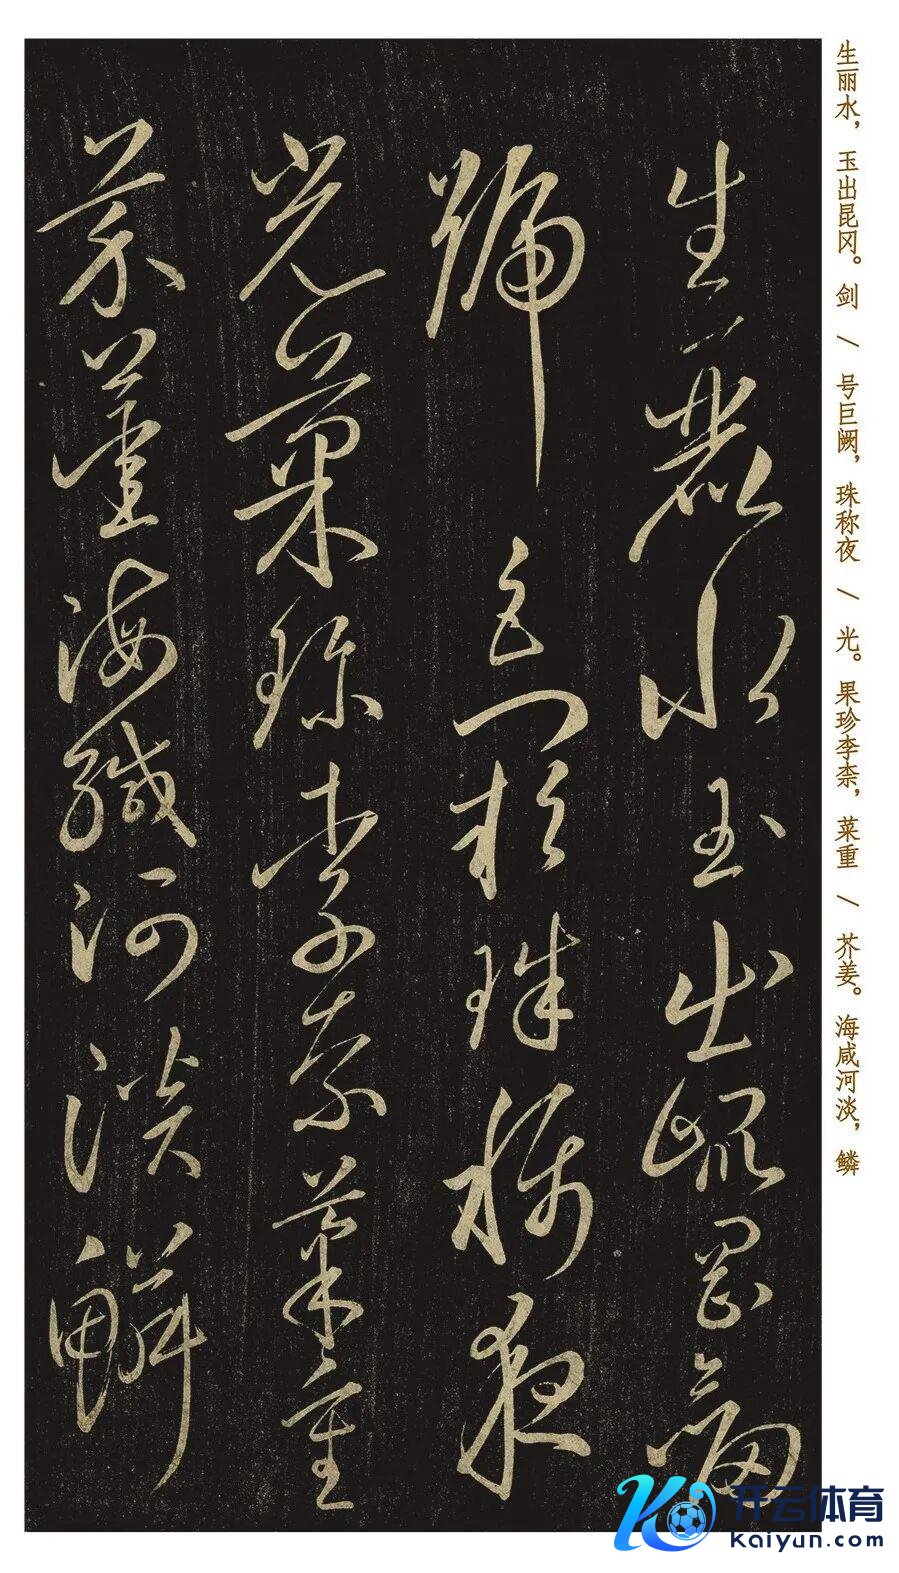 生麗水玉出崐岡劒
號巨闕珠稱夜
光菓珍李柰菜重
芥薑海鹹河淡鱗
生丽水，玉出昆冈。剑 / 号巨阙，珠称夜 / 光。果珍李柰，菜重 / 芥姜。海咸河淡，鳞
开云体育
Kaiyun.com